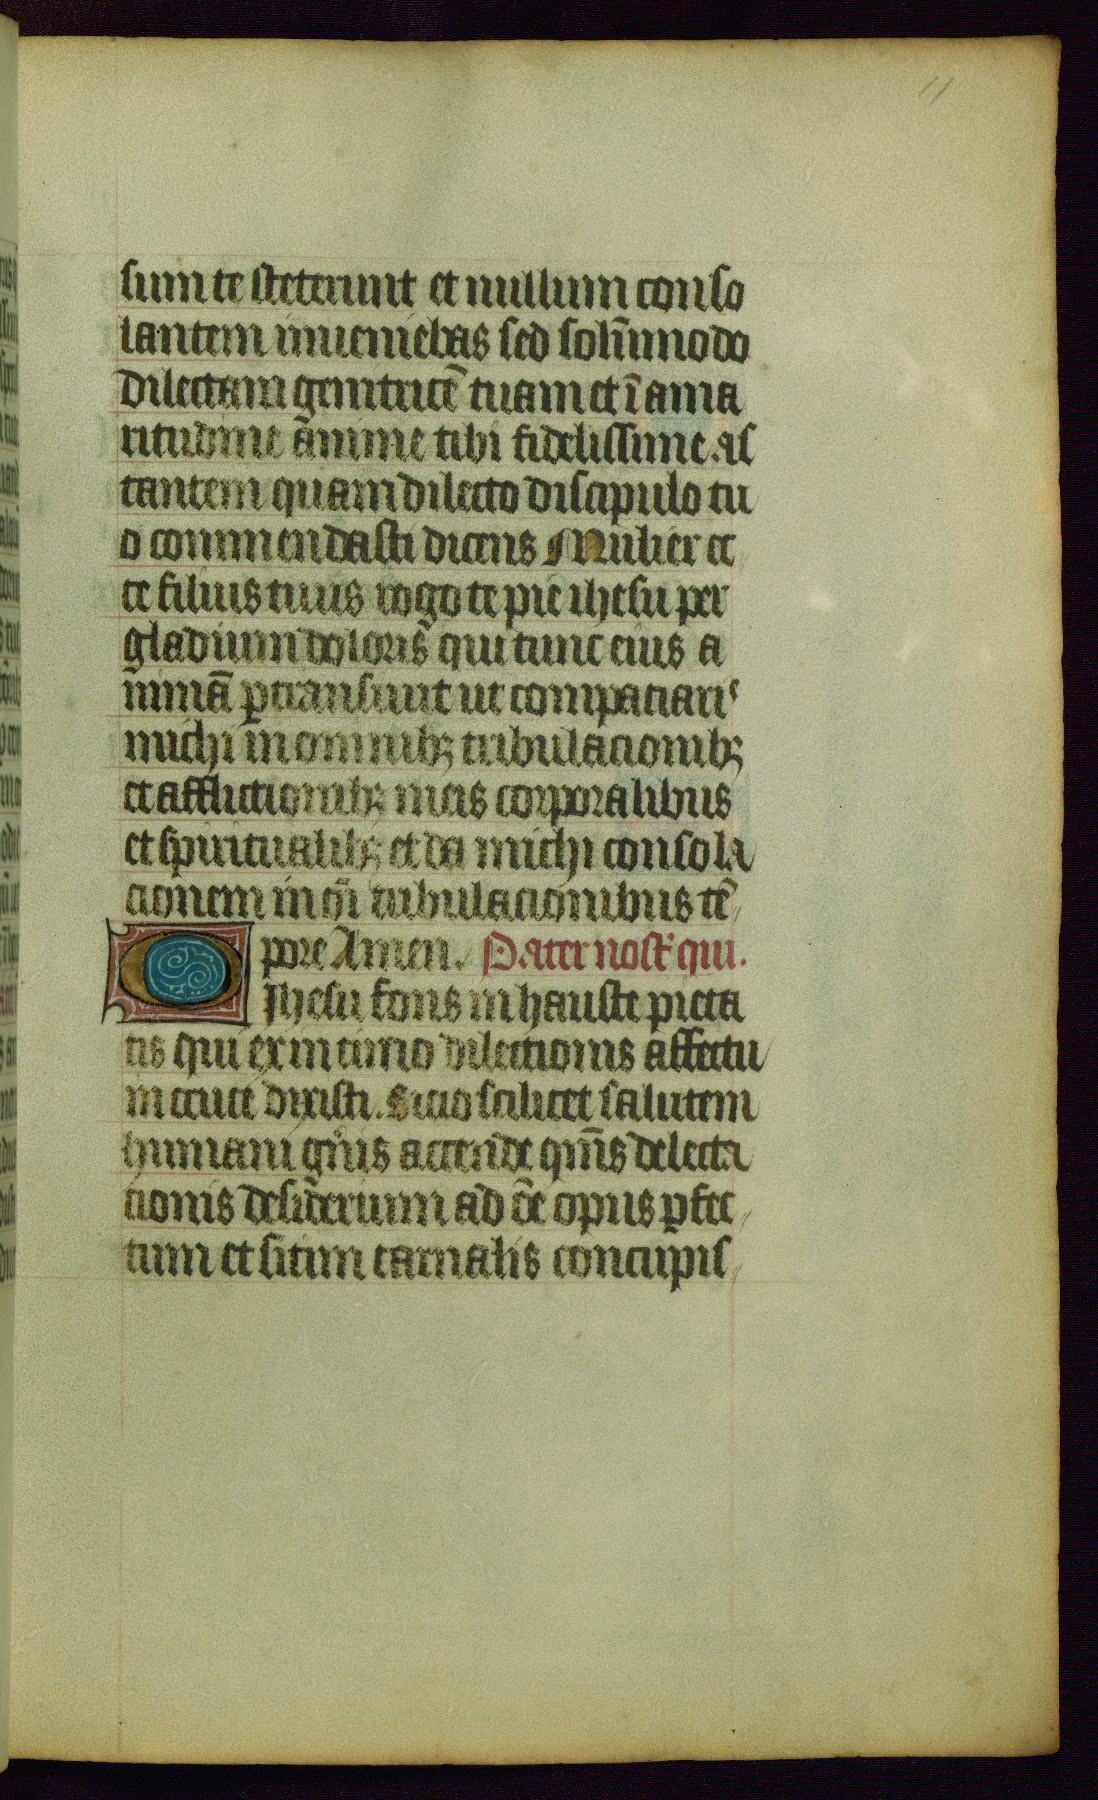 11
sum te steterunt et nullum conso
lantem inueniebas sed solūmodo
dilectam genitricē tuam et ī ama
ritudine āmime tibi fidelissime as
tantem quam dilecto discipulo tu
o commendasti dicens Mulier ec
ce filius tuus rogo te pie ihesu per
gladium doloris qui tunc eius a
nimā ꝑtransiuit ut compaciaris
michi in omnibꝫ tribulacionibꝫ
et afflictionibꝫ meis corporalibus
et spiritualibꝫ et da michi consola
cionem in oī tribulacionibus tē
pore Amen. Pater nost̉ qui.
O Ihesu fons in hauste pieta
tis qui ex intimo dilectionis affectu
in cruce dixisti. Sicio scilicet salutem
humani gñis accende q̄ms delecta
cionis desiderium ad ōe opus ꝑfec
tum et sitim carnalis concupis